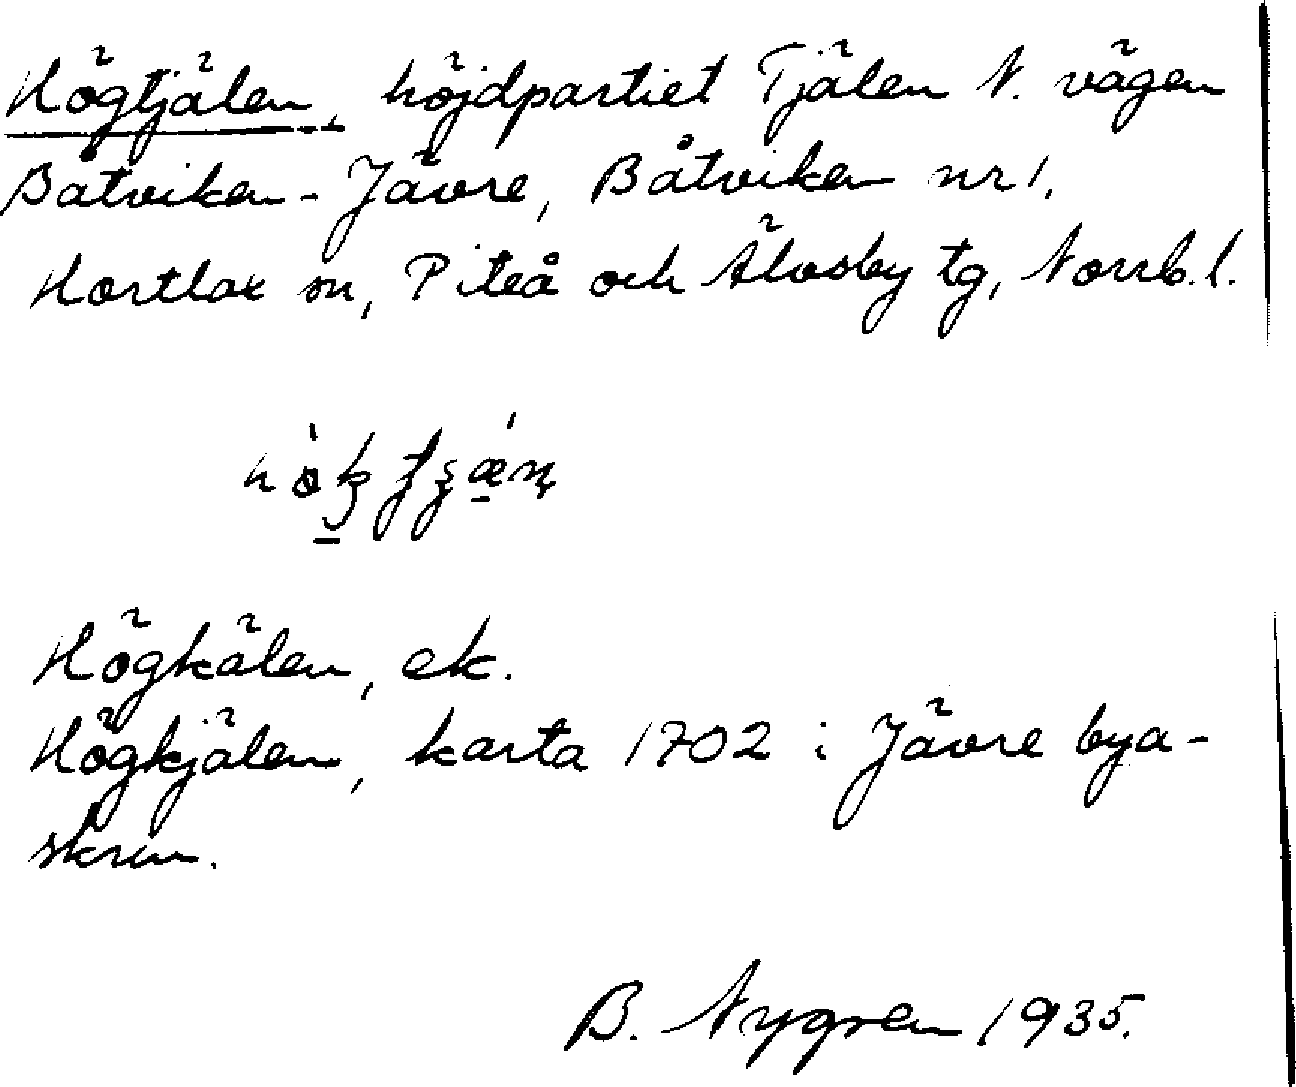 Högtjälen, höjdpartiet Tjälen N. vägen
Båtviken - Jävre, Båtviken nr 1.
Hortlax sn, Piteå och Älvsby tg, Norrb. l.
Högkälen, ek.
Högkjälen, karta 1702 i Jävre bya-
skrin.
B. Nygren 1935.